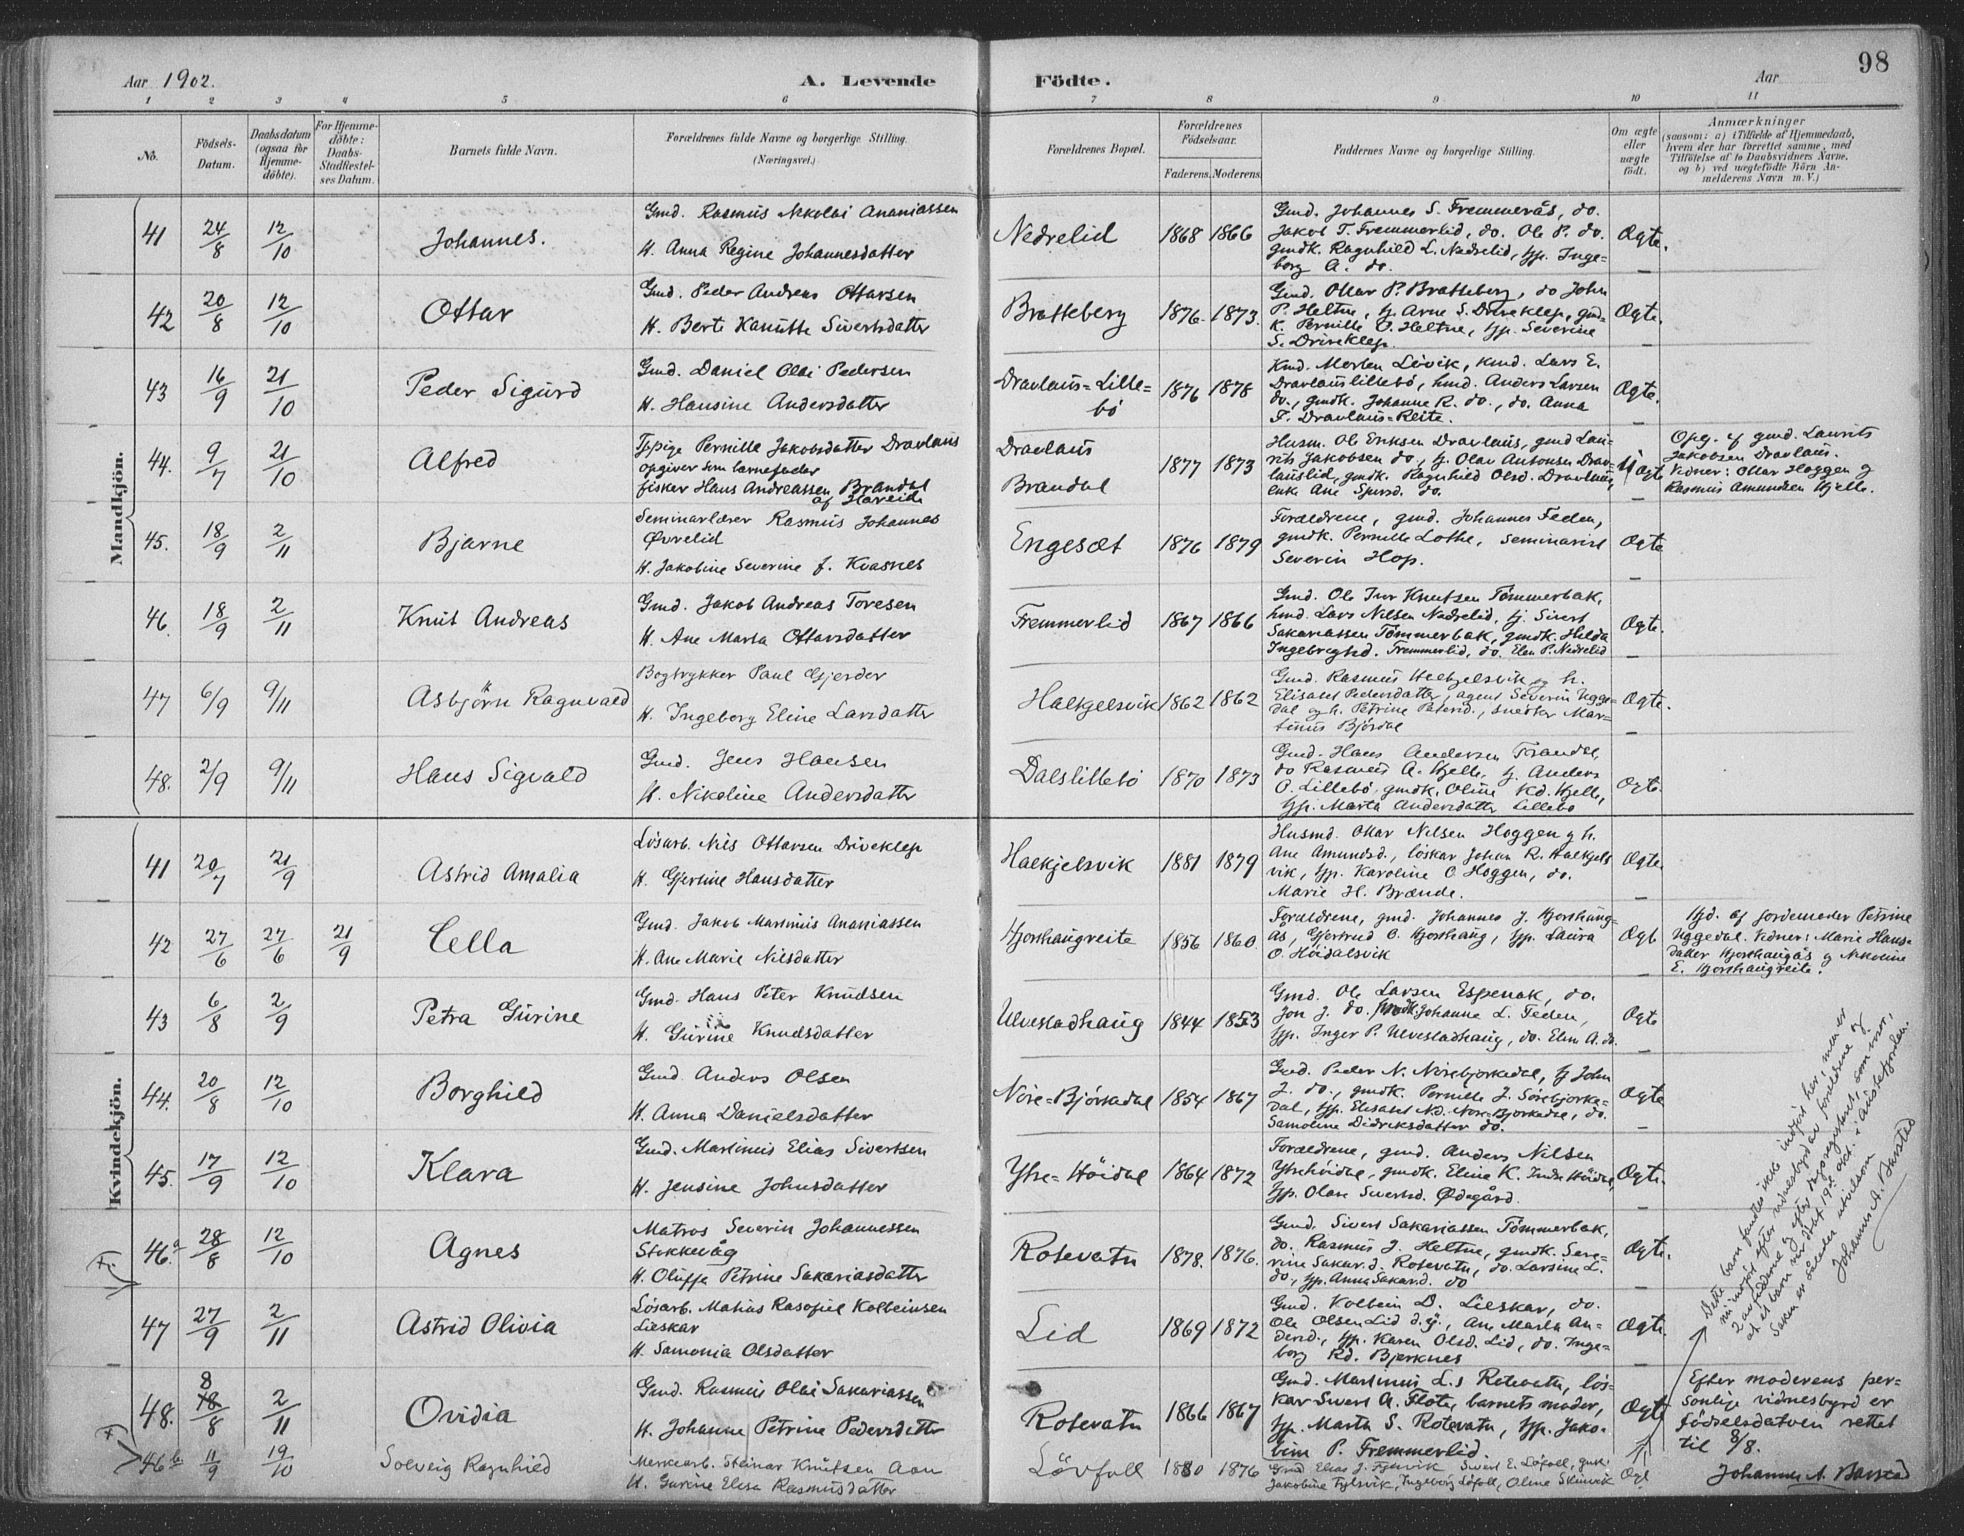 98
Aar 1902.
A. Levende Födte.
Aar
1 2 3 4 5 6 7 8 9 10 11
No.
Födsels-
Datum.
Daabsdatum
(ogsaa for
Hjemme-
döbte).
For Hjemme-
döbte:
Daabs-
Stadfæstel-
ses Datum.
Barnets fulde Navn.
Forældrenes fulde Navne og borgerlige Stilling.
(Næringsvei.)
Forældrenes Bopæl.
Forældrenes
Födselsaar.
Faderens. Moderens.
Faddernes Navne og borgerlige Stilling.
Om ægte
eller
uægte
födt.
Anmærkninger
(saasom: a) i Tilfælde af Hjemmedaab,
hvem der har forrettet samme, med
Tilföielse af to Daabsvidners Navne,
og b) ved uægtefödte Börn An-
melderens Navn m. V.)
Mandkjön.
41 24/8 12/10 Johannes.
Gmd. Rasmus Nikolai Ananiassen
H. Anna Regine Johannesdatter
Nedrelid 1868 1866
Gmd. Johannes S. Fremmerås, do.
Jakob T. Fremmerlid, do. Ole P. do.
gmdk. Ragnhild L. Nedrelid, pp. Inge-
borg A. do.
Ægte.
42 20/8 12/10 Ottar
Gmd. Peder Andreas Ottarsen
H. Berte Kanutte Sivertsdatter
Bratteberg 1876. 1873.
Gmd. Ottar P. Bratteberg, do John
P. Heltne, g. Arne S. Driveklep, gmd-
k. Pernille O. Heltne, pp. Severine
S. Driveklep
Ægte.
43 16/9 21/10 Peder Sigurd
Gmd. Daniel Olai Pedersen
H. Hansine Andersdatter
Dravlaus=Lille=
bö 1876 1878
Kmd. Morten Lövik, kmd. Lars E.
Dravlauslillebö, hmd. Anders Larsen
do., gmdk. Johanne R. do., do. Anna
T. Dravlaus=Reite.
Ægte.
44. 9/7 21/10 Alfred
Tjpige Pernille Jakobsdatter Dravlaus
opgiver som barnefader
fisker Hans Andreassen Brandal
af Hareide
Dravlaus
Brandal 1877 1873
Husm. Ole Eriksen Dravlaus, gmd Lau-
rits Jakobsen do., g. Olav Antonsen Drav-
lauslid, gmdk. Ragnhild Olsd. Dravlaus,
enk. Ane Sjursd. do.
Uægte
Opg. af gmd. Laurits
Jakobsen Dravlaus.
Vidner: Ottar Hoggen og
Rasmus Amundsen Hjelle.
45. 18/9 2/11 Bjarne
Seminarlærer Rasmus Johannes
Øvrelid
H. Jakobine Severine f. Kvasnes
Engeset 1876 1879
Forældrene, gmd. Johannes Feden,
gmdk. Pernille Lothe, seminarist
Severin Hop.
Ægte
46. 18/9 2/11 Knut Andreas
Gmd. Jakob Andreas Toresen
H. Ane Marta Ottarsdatter
Fremmerlid 1867 1866
Gmd. Ole Iver Knutsen Tömmerbak,
hmd. Lars Nilsen Nedrelid, g. Sivert
Sakariassen Tömmerbak, gmdk. Hilda
Ingebrigtsd. Fremmerlid, do. Elen P. Nedrelid
Ægte.
47 6/9 9/11 Asbjörn Ragnvald
Bogtrykker Paul Gjerder
H. Ingeborg Eline Larsdatter
Halkjelsvik 1862 1862
Gmd. Rasmus Helkjelsvik og h.
Elisabet Pedersdatter, agent Severin Ugge-
dal og h. Petrine Petersd., snedker Mar-
tinus Björdal
Ægte.
48. 2/9 9/11 Hans Sigvald
Gmd. Jens Hansen
H. Nikoline Andersdatter
Dalslillebö 1870 1873
Gmd. Hans Andersen Frandal
do Rasmus A. Hjelle, g. Anders
O. Lillebö, gmdk. Oline Kd. Hjelle,
pp. Marta Andersdatter Lillebö
Ægte.
Kvindekjön.
41 20/7 21/9 Astrid Amalia
Lösarb. Nils Ottarsen Driveklep
H. Gjertine Hansdatter
Halkjelsvik 1881 1879
Husmd. Ottar Nilsen Hoggen og h.
Ane Amundsd., löskar Johan R. Halkjels
vik, pp. Karoline O Hoggen, do.
Marie H. Brænde.
Ægte.
42 27/6 27/6 21/9 Cella
Gmd. Jakob Martinus Ananiassen
H. Ane Marie Nilsdatter
Hjorthaugreite 1856 1860.
Forældrene, gmd. Johannes J. Hjorthaug-
ås, Gjertrud O. Hjorthaug, pp. Laura
O. Höidalsvik
Ægt.
Hjd. af jordemoder Petrine
Uggedal. Vidner: Marie Hans-
datter Hjorthaugås og Nikoline
E. Hjorthaugreite.
43 6/8 2/9 Petra Gurine
Gmd. Hans Peter Knudsen
H. Gurine Knudsdatter
Ulvestadhaug 1844 1853
Gmd. Ole Larsen Espenak, do.
Jon J. do. gmdk. Johanne L. Feden,
pp. Inger P. Ulvestadhaug, do. Elen A. do.
Ægte
44. 20/8 12/10 Borghild
Gmd. Anders Olsen
H. Anna Danielsdatter
Nore=Bjørkedal 1854 1867
Gmd. Peder N. Norebjorkedal, g John
J. do., gmdk. Pernille J. Sörebjorke-
dal, pp. Elisabet Nd. Nore=Bjorkedal, do.
Samoline Didriksdatter do.
Ægte
45. 17/9 12/10 Klara
Gmd. Martinus Elias Sivertsen
H. Jensine Johnsdatter
Ytre=Höidal 1864 1872
Forældrene, gmd. Anders Nilsen
Ytrehöidal, gmdk. Eline K. Indre Höidal,
pp. Olave Sivertsd. Ødegård.
Ægte.
F. 46a. 28/8 12/10 Agnes
Matros Severin Johannessen
Stokkevåg
H. Oluffa Petrine Sakariasdatter
Rotevatn 1878. 1876.
Gmd. Sivert Sakariassen Tömmerbak,
do. Rasmus J. Heltne, gmdk. Seve-
rine Sakar.d. Rotevatn, do. Larsine L.
do, pp. Anna Sakar.d. do
Ægte.
47 27/9 2/11 Astrid Olivia
Lösarb. Matias Rasofiel Kolbeinsen
Lieskar
H. Samonia Olsdatter
Lid 1869 1872
Gmd. Kolbein D. Lieskar, do.
Ole Olsen Lid d.y., Ane Marta An-
dersd., pp. Karen Olsd. Lid, do. Inge-
borg Rd. Bjerknes
Ægte.
48. 8 18/8 2/11 Ovidia
Gmd. Rasmus Olai Sakariassen
H. Johanne Petrine Pedersdatter
Rotevatn 1866 1867
Gmd. Martinus L.s Rotevatn, lös-
kar Sivert A. Flote, barnets moder,
pp. Marta S. Rotevatn, pp. Jako-
bine P. Fremmerlid
Ægte
Efter moderens per-
sonlige vidnesbyrd er
födselsdatoen rettet
til 8/8.
Johannes A. Barstad
F 46b 11/9 19/10 Solveig Ragnhild
Merkearb. Steinar Knutsen Aam
H. Gurine Elisa Rasmusdatter
Lövfoll 1880 1876
Gmd Elias J. Fylsvik, Sivert E. Löfoll, gmdk.
Jakobine Fylsvik, Ingeborg Löfoll, Oline Skinvik
Ægt
Dette barn fandtes ikke indfört her, men er
nu indfört efter vidnesbyrd av foreldrene og
2 av fadderne og efter dagsregisteret, som viser,
at et barn var döbt 19de okt. i Austefjorden.
Saken er således utvilsom
Johannes A. Barstad